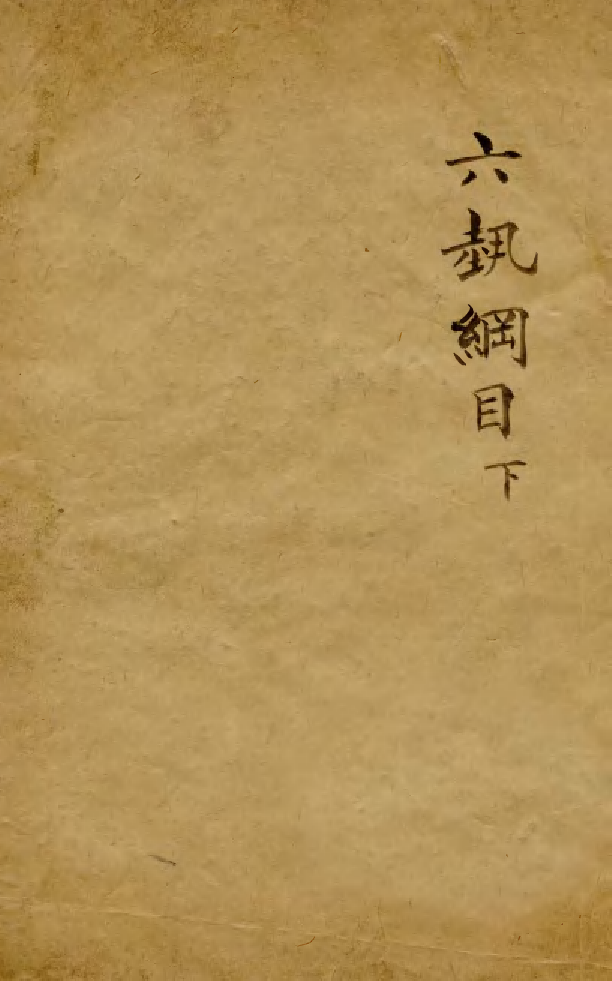 六埶綱目下